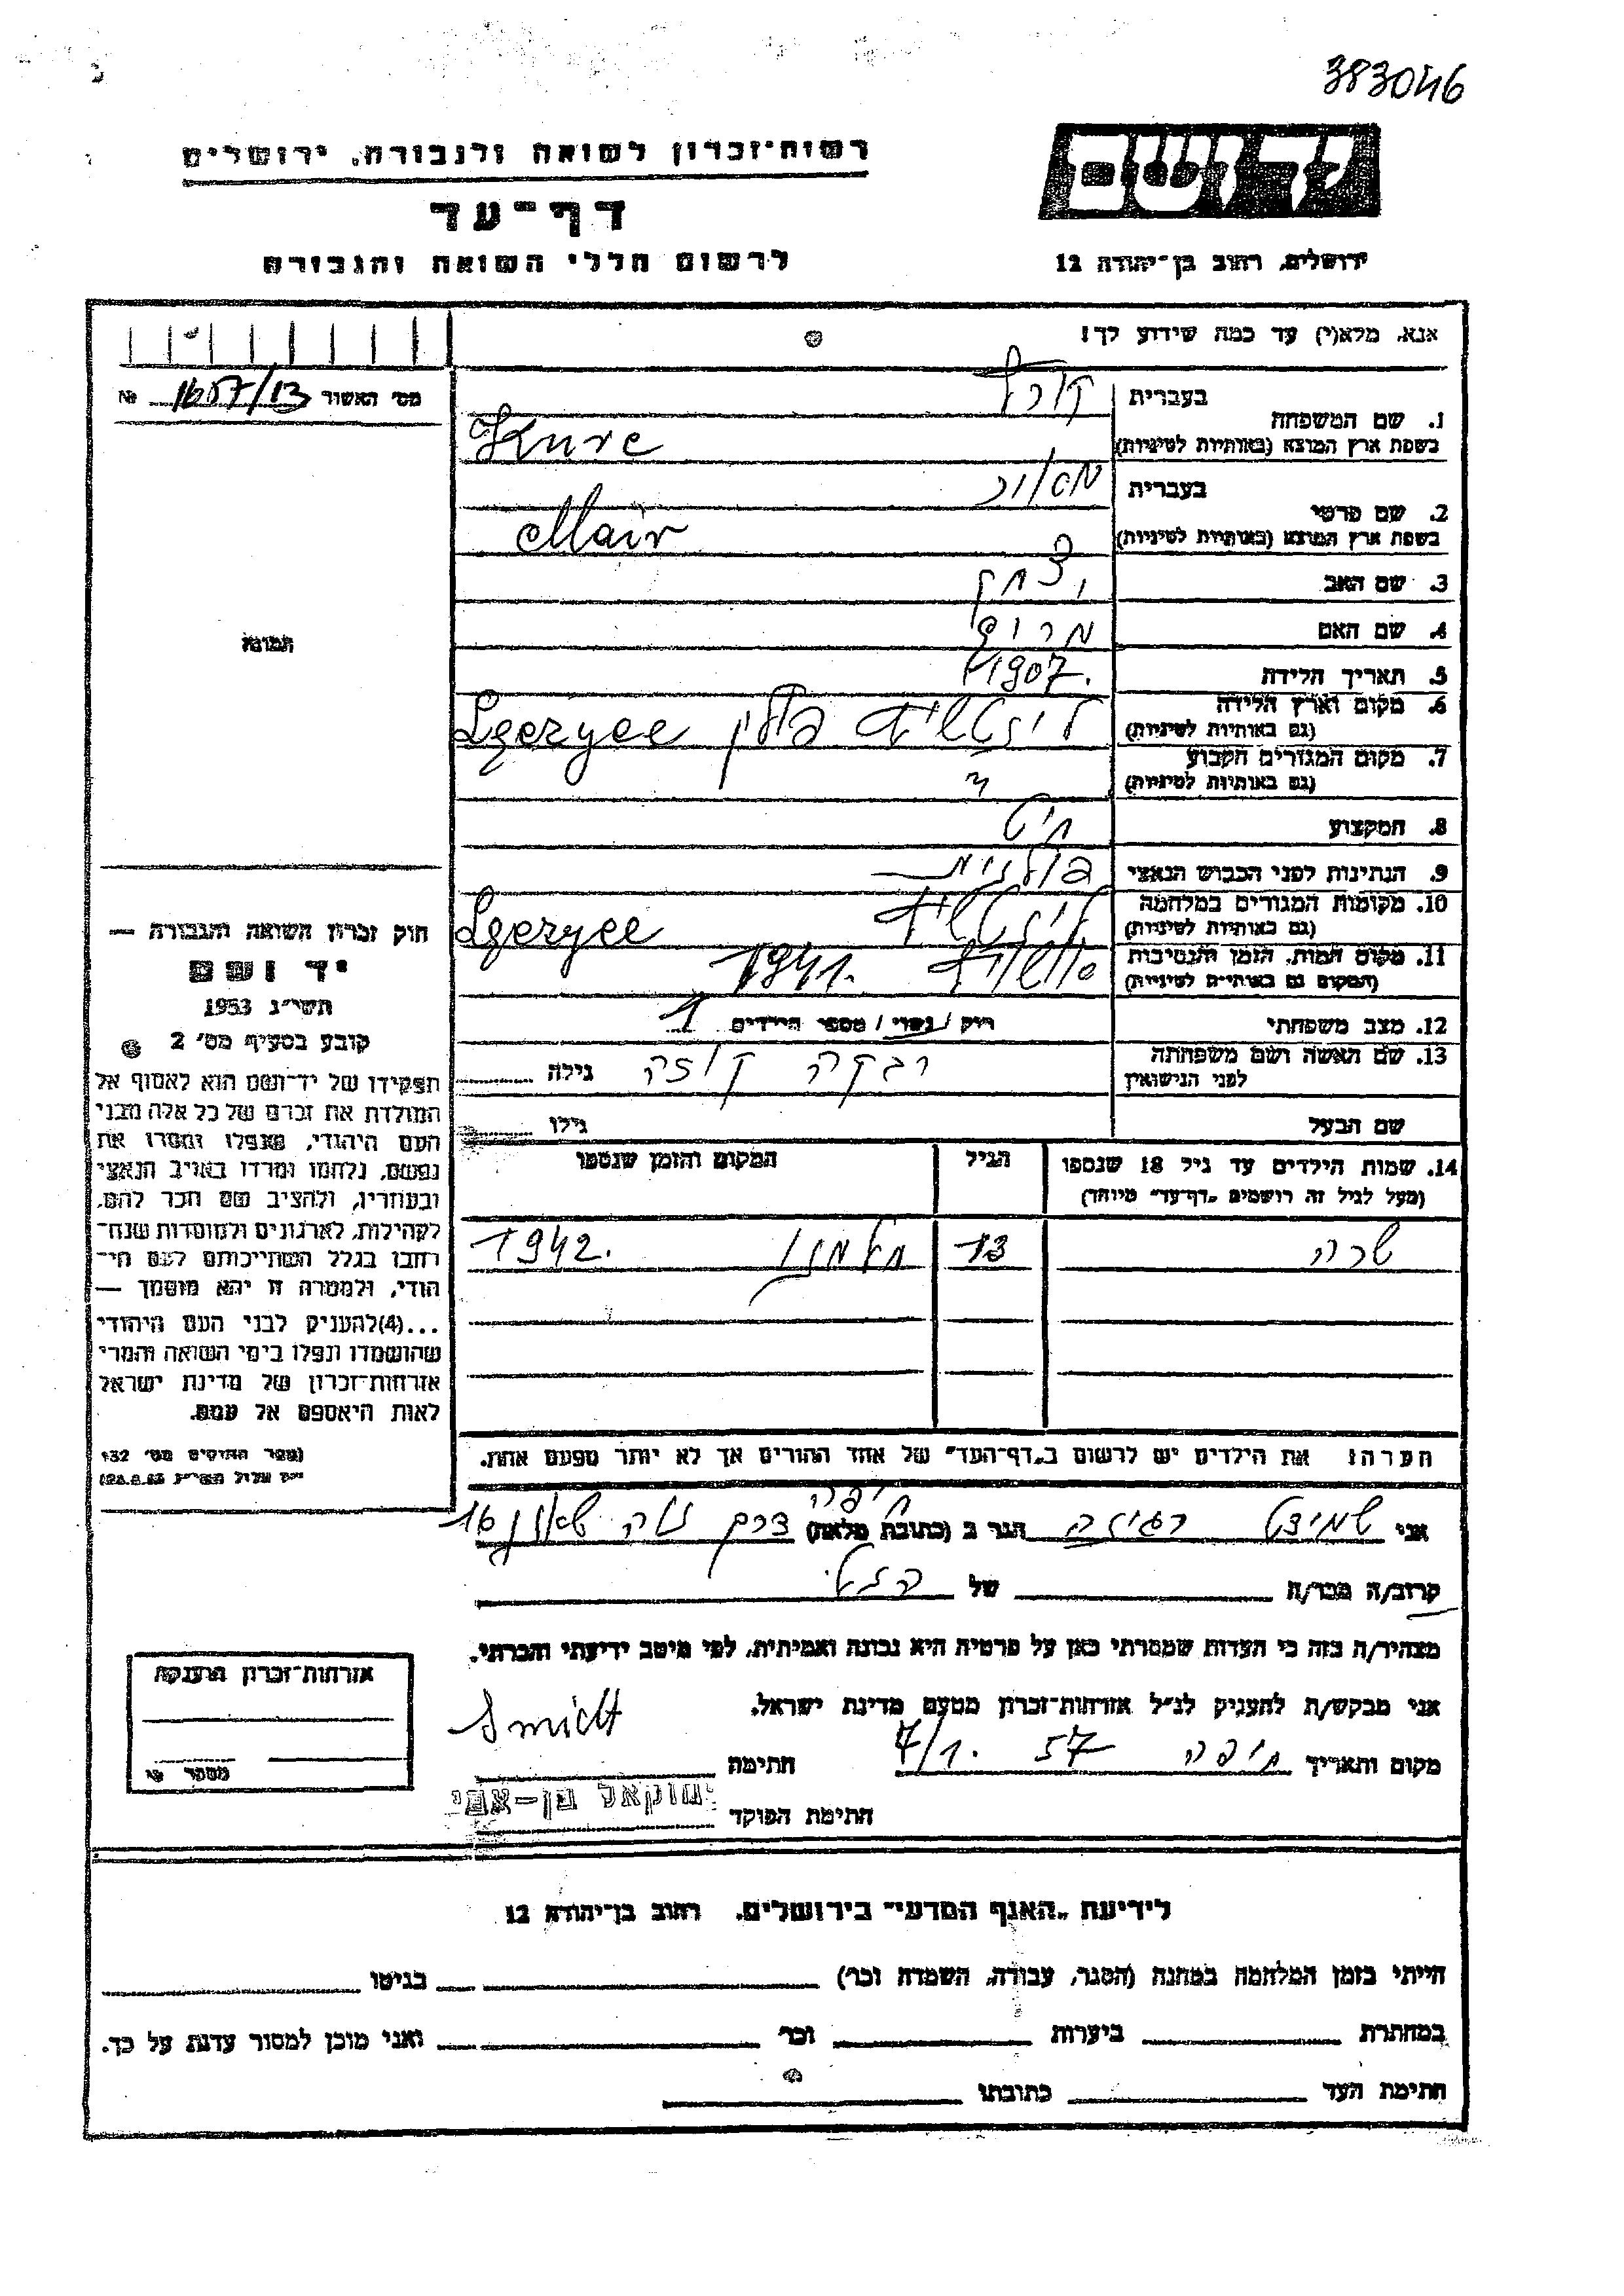 383046
רשות־זכרון לשואה ולגבורה, ירושלים
דף־עד
לרשום חללי השואה והגבורה
יד ושם
ירושלים, רחוב בן־יהודה 12
אנא, מלא(י) עד כמה שידוע לך!
מס׳ האשור 1657/13 №
בעברית
1. שם המשפחה
בשפת ארץ המוצא (באותיות לטיניות) Kurc
בעברית
2. שם פרטי
בשפת ארץ המוצא (באותיות לטיניות) Mair
3. שם האב יצחק
4. שם האם
5. תאריך הלידה 1907.
6. מקום וארץ הלידה פולין
(גם באותיות לטיניות)
7. מקום המגורים הקבוע
(גם באותיות לטיניות)
8. המקצוע חיט
9. הנתינות לפני הכבוש הנאצי פולנית
10. מקומות המגורים במלחמה
(גם באותיות לטיניות)
11. מקום המות, הזמן והנסיבות 1941.
(המקום גם באותיות לטיניות)
12. מצב משפחתי רוק / נשוי / מספר הילדים 1
13. שם האשה ושם משפחתה רבקה גילה
לפני הנישואין
שם הבעל גילו
14. שמות הילדים עד גיל 18 שנספו הגיל המקום והזמן שנספו
(מעל לגיל זה רושמים „דף־עד״ מיוחד)
שרה 13 חלמנו 1942.
הערה: את הילדים יש לרשום ב„דף־העד״ של אחד ההורים אך לא יותר מפעם אחת.
תמונה
חוק זכרון השואה והגבורה —
יד ושם
תשי״ג 1953
קובע בסעיף מס׳ 2
תפקידו של יד־ושם הוא לאסוף אל
המולדת את זכרם של כל אלה מבני
העם היהודי, שנפלו ומסרו את
נפשם, נלחמו ומרדו באויב הנאצי
ובעוזריו, ולהציב שם וזכר להם,
לקהילות, לארגונים ולמוסדות שנח־
רבו בגלל השתייכותם לעם הי־
הודי, ולמטרה זו יהא מוסמך —
...(4)להעניק לבני העם היהודי
שהושמדו ונפלו בימי השואה והמרי
אזרחות־זכרון של מדינת ישראל
לאות היאספם אל עמם.
(ספר החוקים מס׳ 132
אני שמידט רגינה הגר ב (כתובת מלאה) חיפה דרך נוה שאנן 16
קרוב/ה מכר/ה של
מצהיר/ה בזה כי העדות שמסרתי כאן על פרטיה היא נכונה ואמיתית, לפי מיטב ידיעתי והכרתי.
אני מבקש/ת להעניק לנ״ל אזרחות־זכרון מטעם מדינת ישראל.
מקום ותאריך חיפה 7/1. 57 חתימה Smidt
חתימת הפוקד
אזרחות־זכרון הוענקה
מספר
לידיעת „האגף המדעי״ בירושלים, רחוב בן־יהודה 12
הייתי בזמן המלחמה במחנה (הסגר, עבודה, השמדה וכר׳) בגיטו
במחתרת ביערות וכר׳ ואני מוכן למסור עדות על כך.
חתימת העד כתובתו